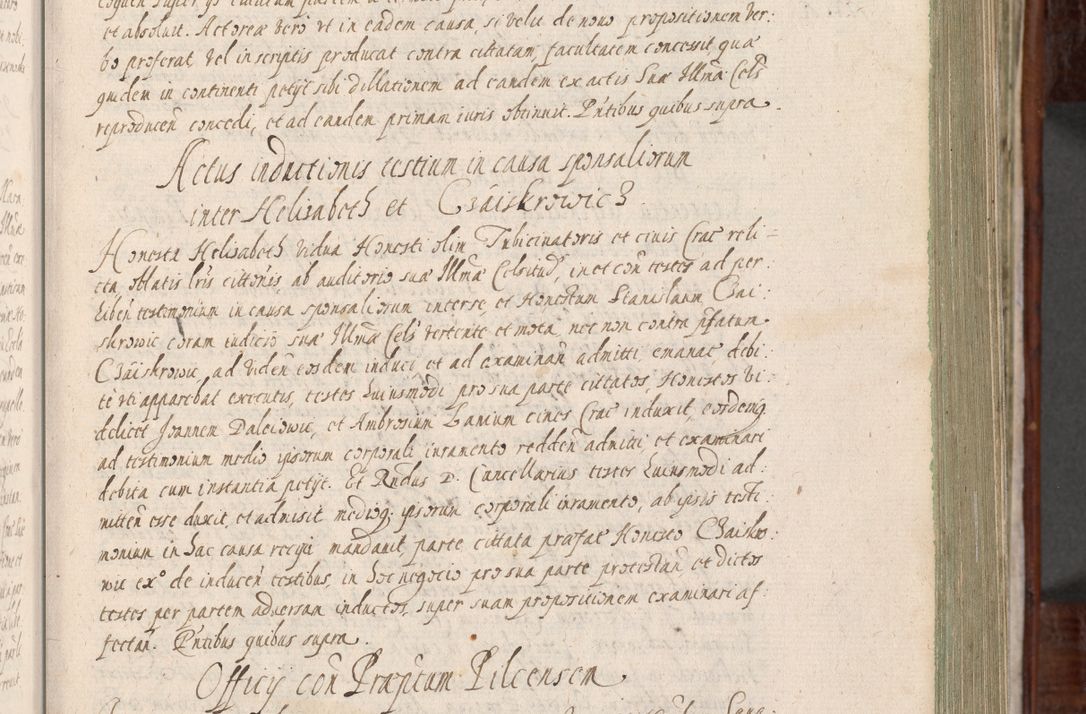 et absoluit. Actoreæ vero vt in eadem causa, si velit de nouo propositionem ver:
bo proferat vel in scriptis producat contra citatum, facultatem concessit quæ
quidem in continenti petijt sibi dillationem ad eandem ex actis Suæ Illmæ Cels
reproducen̄ concedi, et ad eandem primam iuris obtinuit. Pn̄tibus quibus supra.
Actus inductionis testium in causa sponsaliorum
inter Helisabeth et Czaiskowicz
Honesta Helisabeth vidua Honesti olim Tubicinatoris et ciuis Crac reli=
cta, oblatis lr̄is citton̄is, ab auditorio suæ Illmæ Celsitud, in et con̄ testes ad per:
hiben̄ testimonium in causa sponsaliorum inter se, et Honestum Stanislaum Czai:
skowic coram iudicio suæ Illmæ Cels vertente, et mota, nec non contra pfatum
Czaiskowic, ad viden̄ eosdem induci, et ad examinan̄ admitti, emanat debi:
te vti apparebat executis, testes huiusmodi pro sua parte cittatos, Honestos vi:
delicet Joannem Daleiowic, et Ambrosium Lanium ciues Crac induxit, eosdemq
ad testimonium medio ipsorum corporali iuramento redden̄ admitti et examinari
debita cum instantia petijt. Et Rndus D. Cancellarius testes huiusmodi ad:
mitten̄ esse duxit, et admisit medioq ipsorum corporali iuramento, ab ipsis testi:
monium in hac causa recipi mandauit, parte cittata præfat Honesto Czaisko:
wic exº de inducen̄ testibus, in hoc negocio pro sua parte protestan̄, et dictos
testes per partem aduersam inductos, super suam propositionem examinari af:
fectan̄. Pn̄tibus quibus supra.
Officij con̄ Præptum Pilcensem